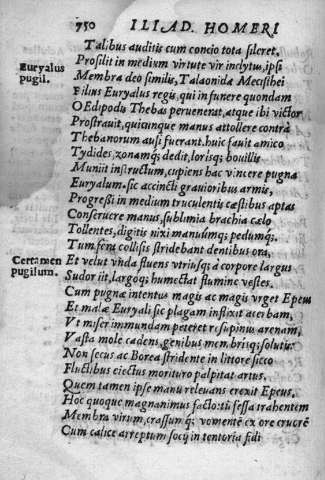 750 ILIAD. HOMERI
Talibus auditis cum concio tota sileret,
Euryalus pugil.
Prosilit in medium virtute vir inclytus, ipsi
Membra deo similis, Talaonidæ Mecisthei
Filius Euryalus regis, qui in funere quondam
OEdipodis Thebas peruenerat, atque ibi victor
Prostrauit, quicunque manus attollere contrà
Thebanorum ausi fuerant. huic fauit amico
Tydides, zonamq; dedit, lorisq; bouillis
Muniit instructum, cupiens hac vincere pugna
Euryalum. sic accincti grauioribus armis,
Progreßi in medium truculentis cæstibus aptas
Conseruere manus, sublimia brachia cælo
Tollentes, digitis nixi manuúmq; pedumq;.
Tum seni collisis stridebant dentibus ora,
Certamen pugilum.
Et velut vnda fluens vtriusq; à corpore largus
Sudor iit, largoq; humectat flumine vestes.
Cum pugnæ intentus magis ac magis vrget Epeus
Et malæ Euryali sic plagam inflixit acerbam,
Vt miser immundam peteret resupinus arenam,
Vasta mole cadens, genibus membrisq; solutis.
Non secus ac Borea stridente in littore sicco
Fluctibus eiectus morituro palpitat artus.
Quem tamen ipse manu releuans erexit Epeus.
Hoc quoque magnanimus facto: tũ fessa trahentem
Membra virum, crassumq; vomentẽ ex ore cruorẽ
Cum calice arreptum socij in tentoria fidi